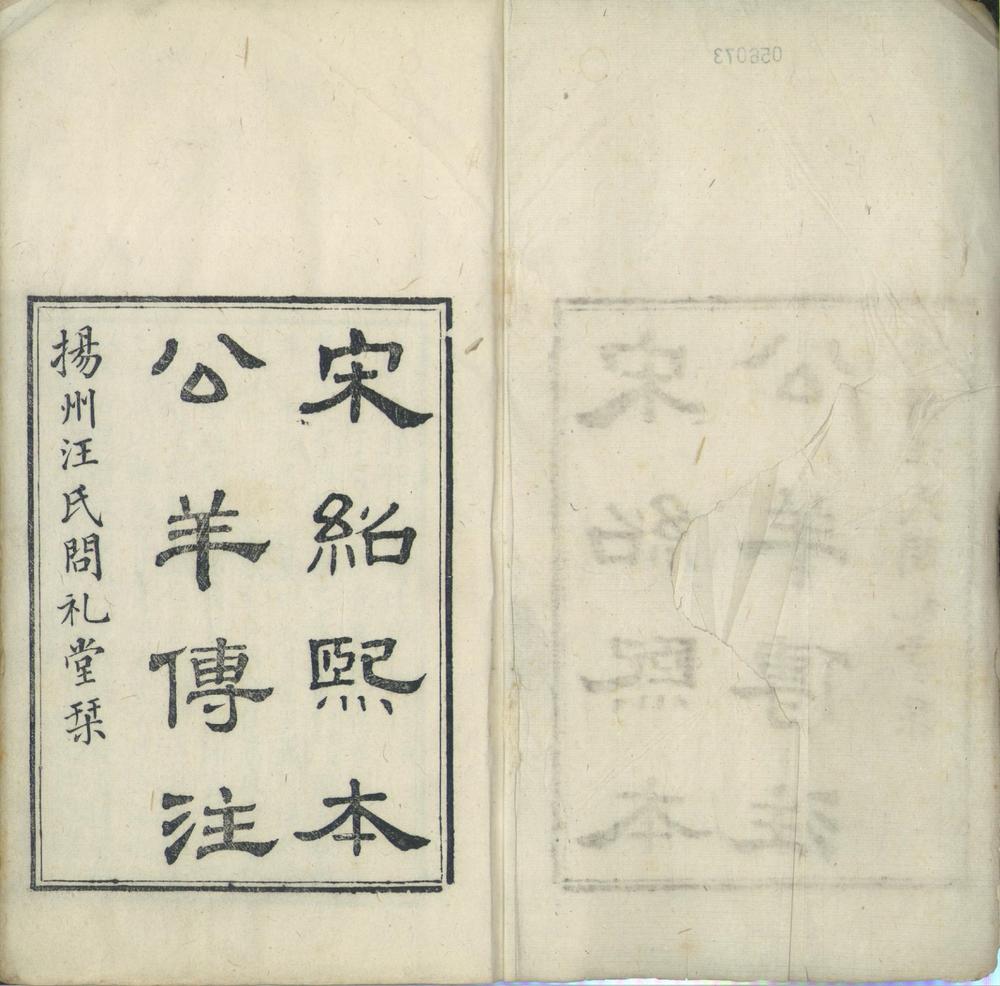 宋紹熙本
公羊傳注
揚州汪氏問礼堂栞
056073